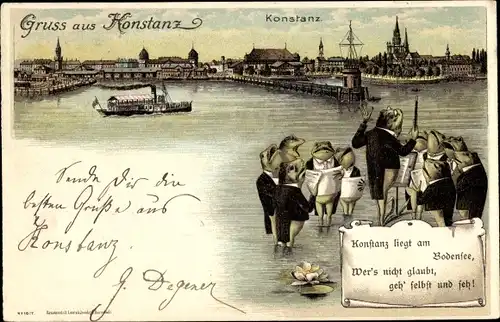 Gruss aus Konstanz
Konstanz
Sende Dir die
besten Grüße aus
Konstanz.
Konstanz liegt am
Bodensee,
Wer's nicht glaubt,
geh' selbst und seh!